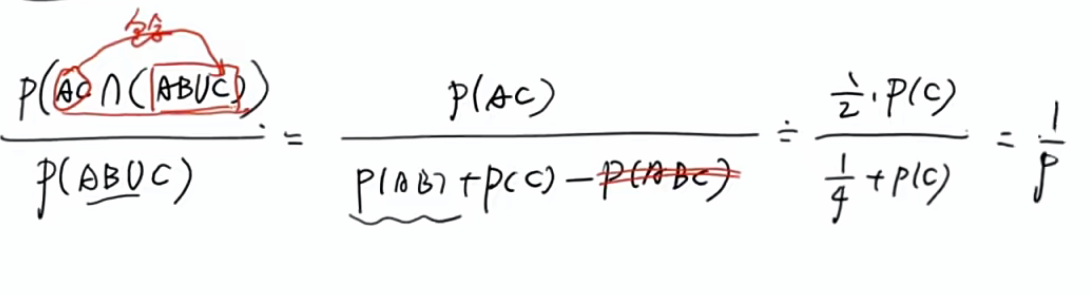 包含
P(AC∩(AB∪C)) / P(AB∪C) = P(AC) / P(AB)+P(C)-P(ABC) ÷ 1/2·P(C) / 1/4+P(C) = 1/P